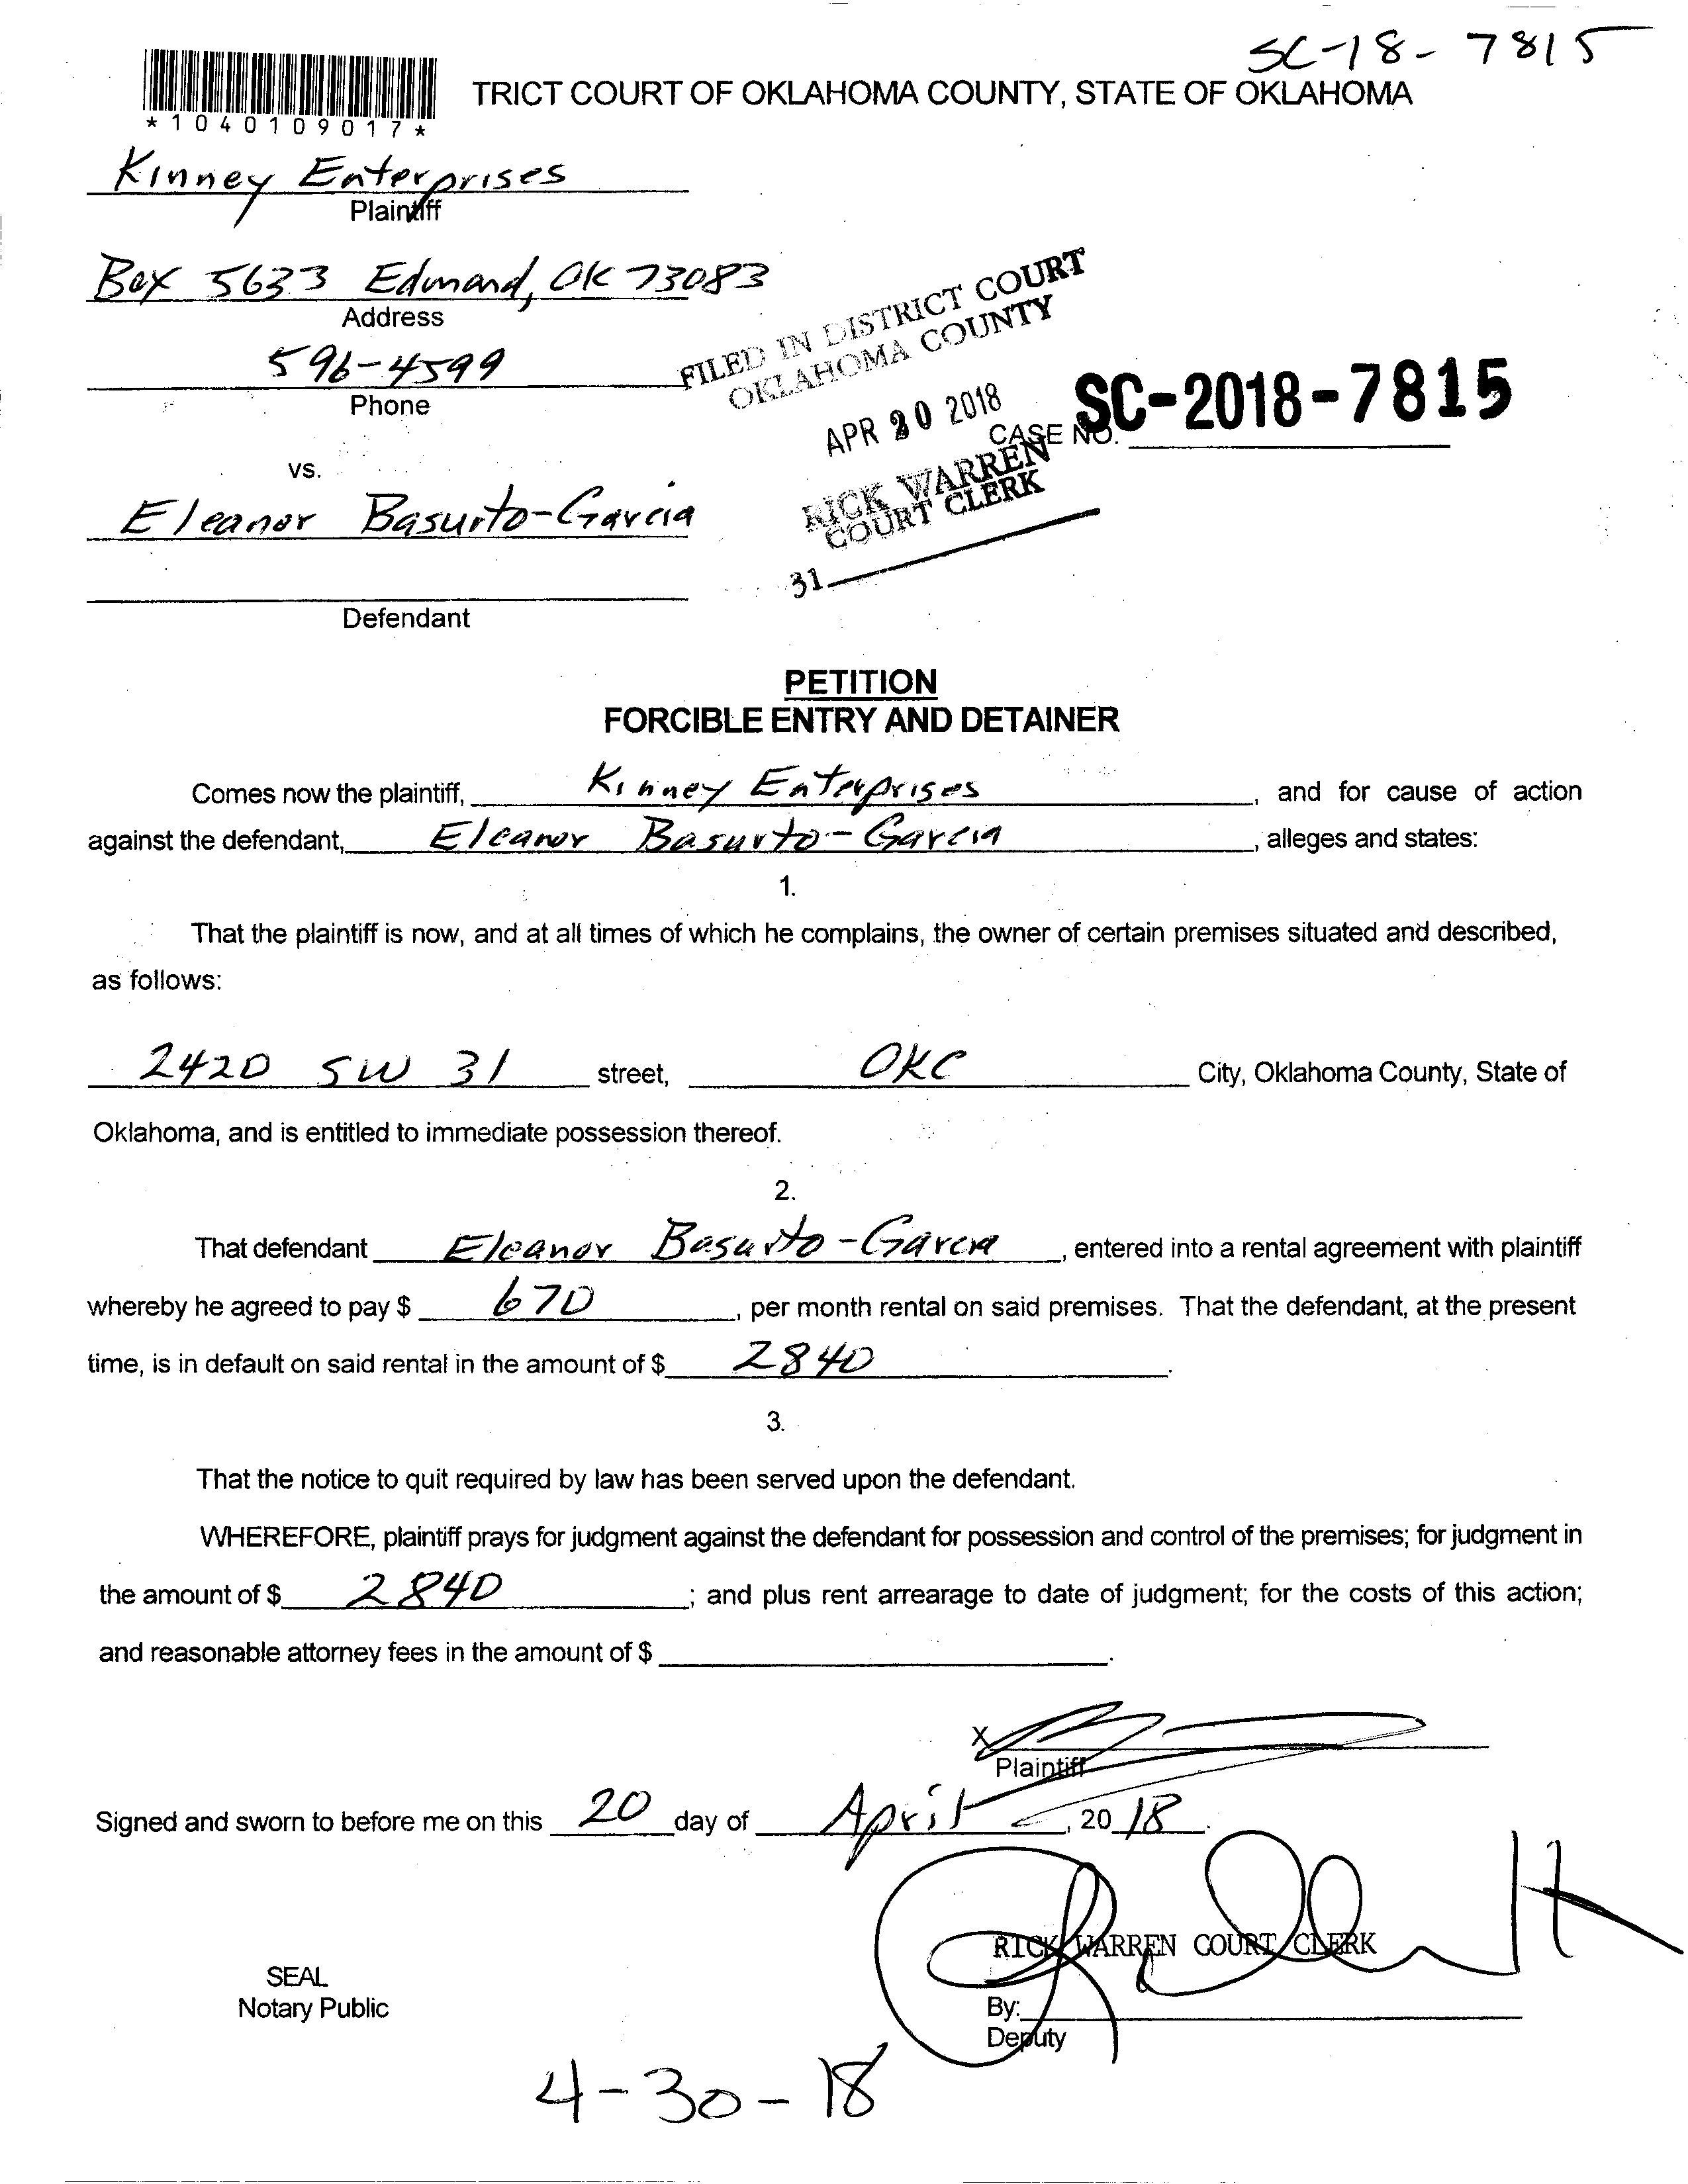 SC-18-7815
TRICT COURT OF OKLAHOMA COUNTY, STATE OF OKLAHOMA
*1040109017*
Kinney Enterprises
Plaintiff
Box 5633 Edmond, OK 73083
Address
596-4599
Phone
FILED IN DISTRICT COURT
OKLAHOMA COUNTY
APR 20 2018
RICK WARREN
COURT CLERK
31
CASE NO. SC-2018-7815
vs.
Eleanor Basurto-Garcia
Defendant
PETITION
FORCIBLE ENTRY AND DETAINER
Comes now the plaintiff, Kinney Enterprises, and for cause of action
against the defendant, Eleanor Basurto-Garcia, alleges and states:
1.
That the plaintiff is now, and at all times of which he complains, the owner of certain premises situated and described,
as follows:
2420 SW 31 street, OKC City, Oklahoma County, State of
Oklahoma, and is entitled to immediate possession thereof.
2.
That defendant Eleanor Basurto-Garcia, entered into a rental agreement with plaintiff
whereby he agreed to pay $ 670, per month rental on said premises. That the defendant, at the present
time, is in default on said rental in the amount of $ 2840.
3.
That the notice to quit required by law has been served upon the defendant.
WHEREFORE, plaintiff prays for judgment against the defendant for possession and control of the premises; for judgment in
the amount of $ 2840; and plus rent arrearage to date of judgment; for the costs of this action;
and reasonable attorney fees in the amount of $ .
X
Plaintiff
Signed and sworn to before me on this 20 day of April, 20 18.
RICK WARREN COURT CLERK
SEAL
Notary Public
By:
Deputy
4-30-18